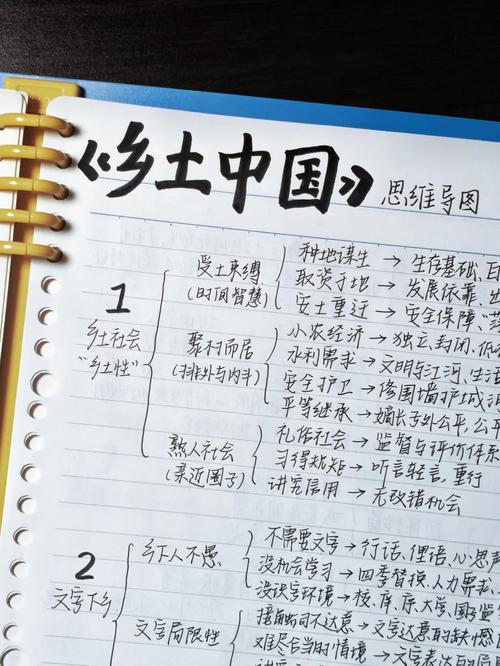 《乡土中国》 思维导图
1
乡土社会
"乡土性"
受土束缚
(时间智慧)
种地谋生 → 生存基础、
取资于地 → 发展依靠、
安土重迁 → 安全保障"
聚村而居
(排外与内斗)
小农经济 → 独立、封闭、低
水利需求 → 文明与江河、生活
安全护卫 → 修围墙护城河
平等继承 → 嫡长子外公平、公平
熟人社会
(亲近圈子)
礼俗社会 → 监督与评价体系
习得规矩 → 听言轻言,重行
讲究信用 → 无改错机会
2
文字下乡
乡下人不愚
不需要文字 → 行话、俚语、心思
没机会学习 → 四季替换、人力需求、
没识字环境 → 校、库、京、大学、
文字局限性
接触时不达意 → 文字达意的缺憾
难尽合当时情境 → 文字表达的